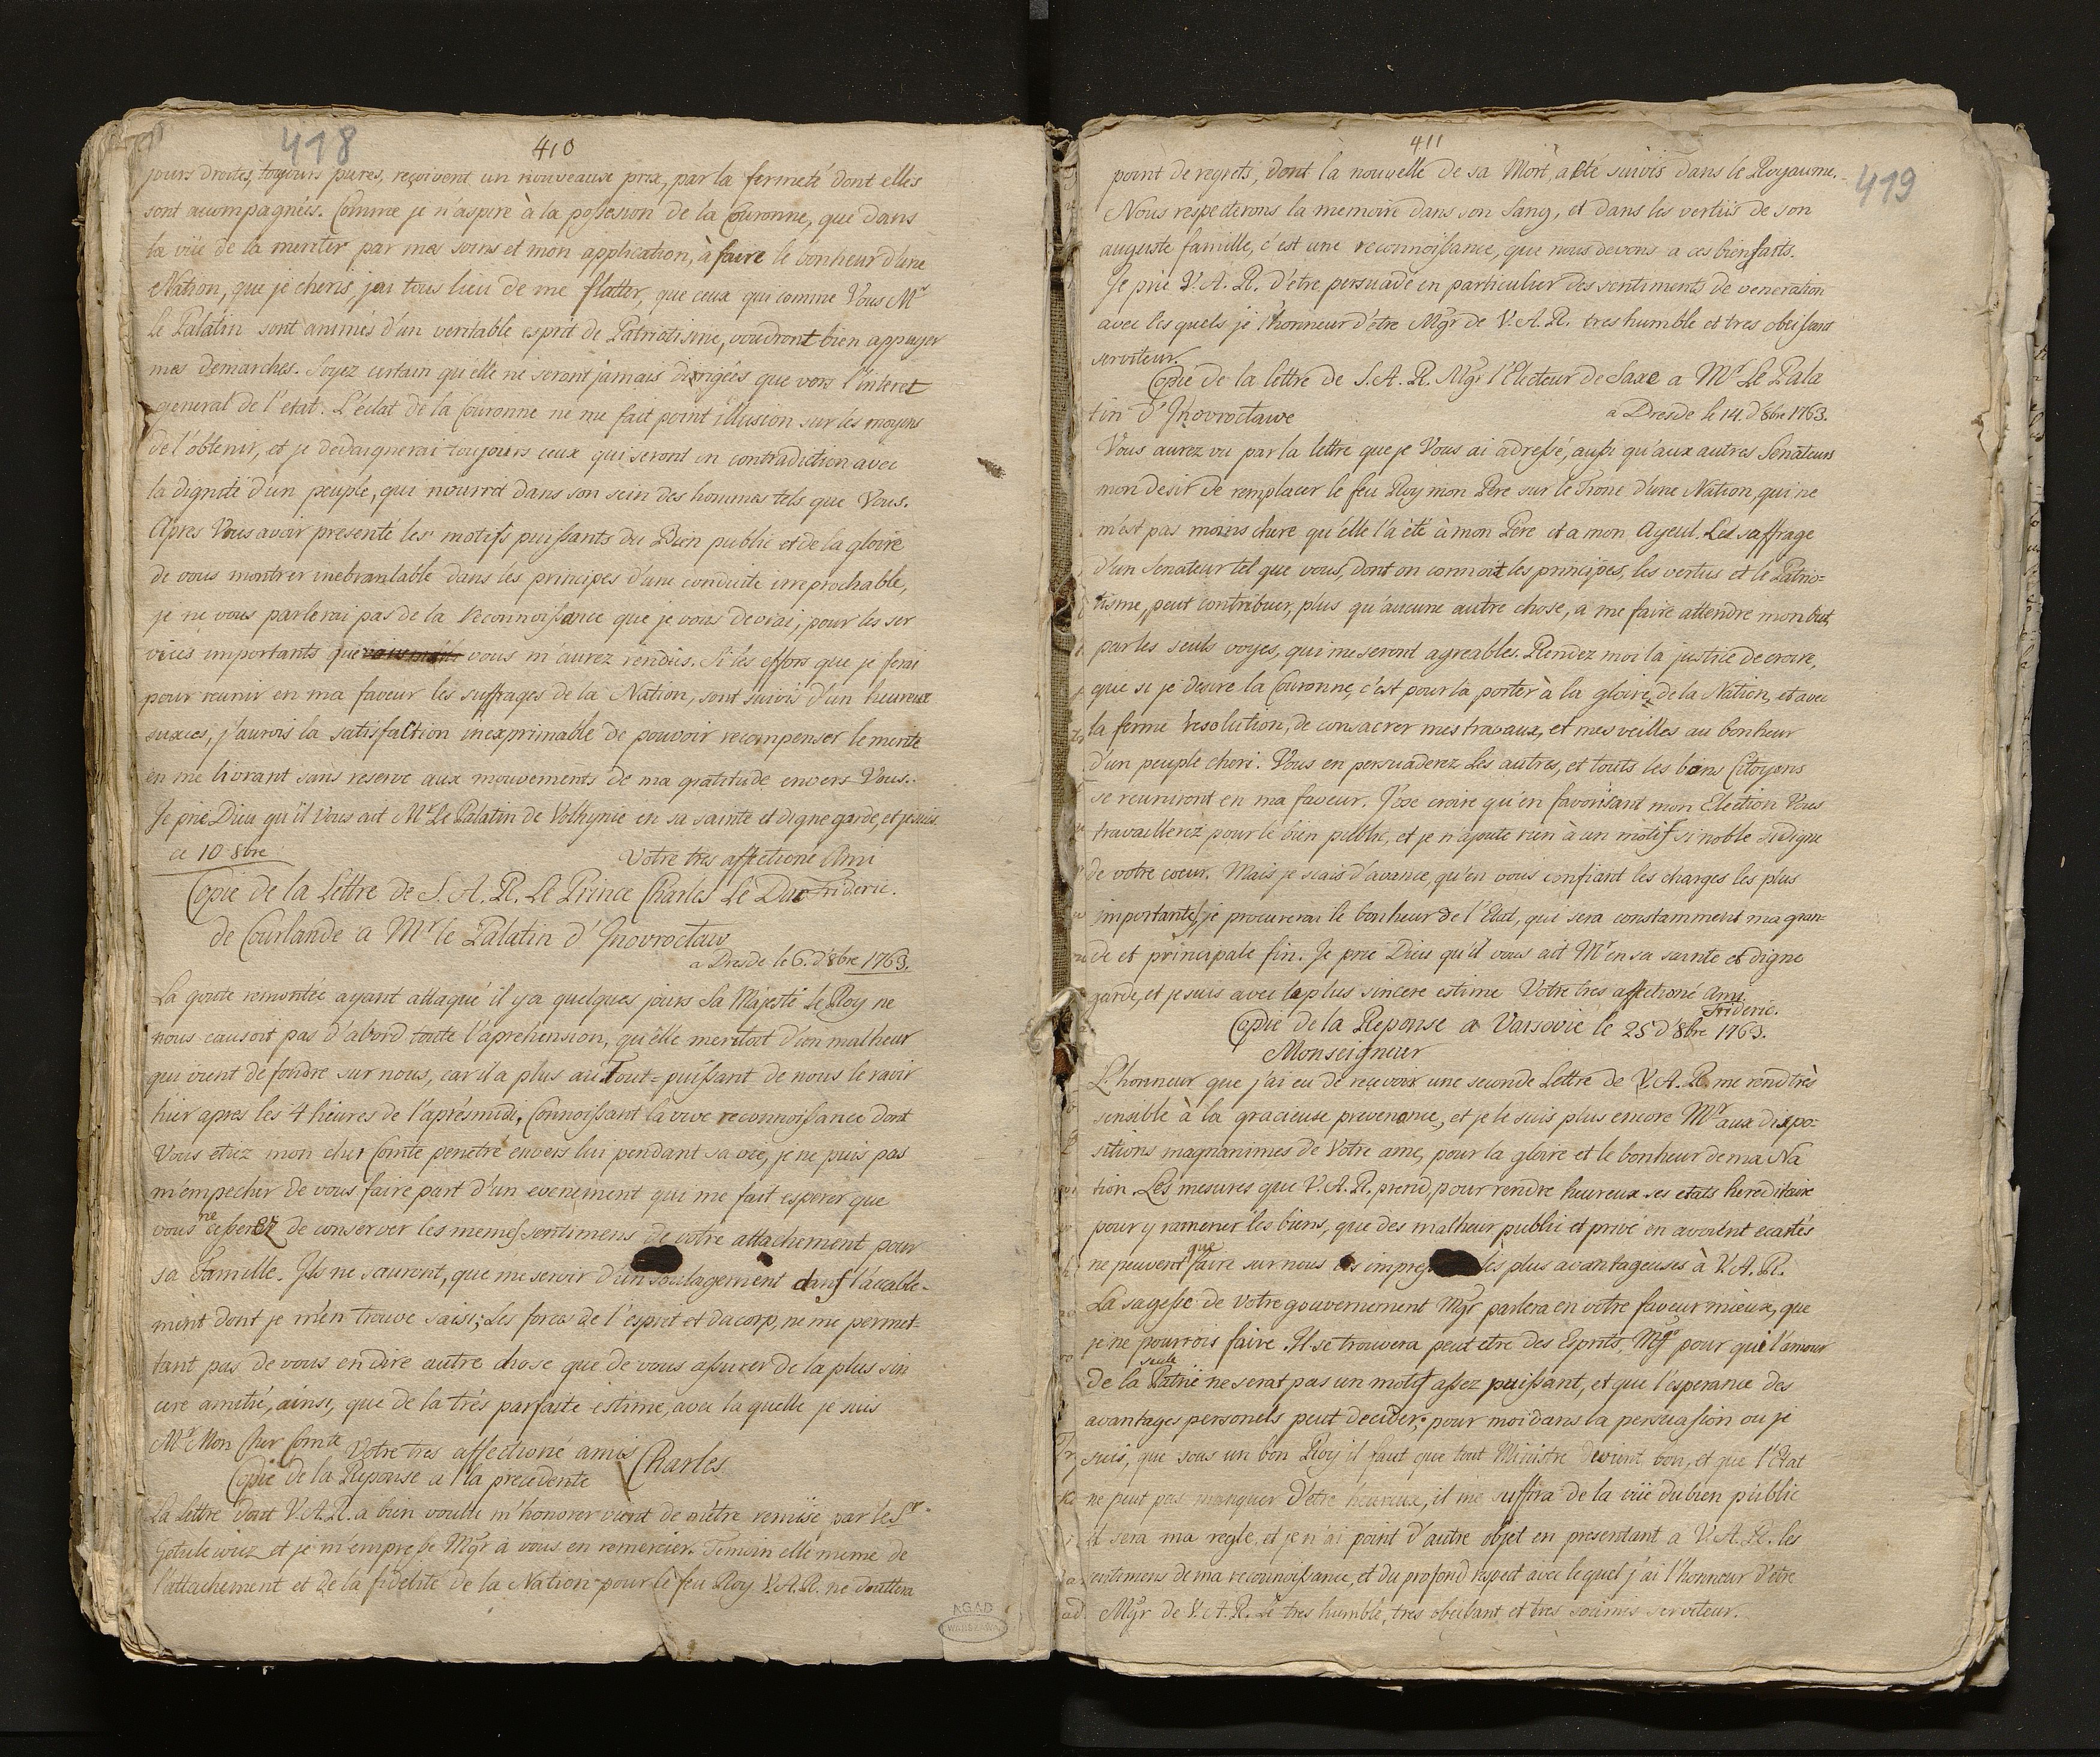 418
410
jours droites, toujours pures, reçoivent un nouveaux prix, par la fermeté dont elles
sont acompagnées. Comme je n'aspire à la possession de la Couronne, que dans
la vüe de la meriter par mes soins et mon application, à faire le bonheur d'une
Nation, que je cheris, jai tous lieu de me flatter, que ceux qui comme Vous Mr
Le Palatin sont animés d'un veritable esprit de Patriotisme, voudront bien appuyer
mes demarches. Soyez certain qu'elle ne seront jamais dirigées que vers l'interet
general de l'etat. L'éclat de la Couronne ne me fait point illusion sur les moyens
de l'obtenir, et je dedaignerai toujours ceux qui seront en contradiction avec
la dignité d'un peuple, qui nourrit dans son sein des hommes tels que Vous.
Apres Vous avoir presenté les motifs puissants du Bien public et de la gloire
de vous montrer inebranlable dans les principes d'une conduite irreprochable,
je ne vous parlerai pas de la reconnoissance que je vous devrai, pour les ser
vices importants que vous m'aurez rendus. Si les effors que je ferai
pour reunir en ma faveur les suffrages de la Nation, sont suivis d'un heureux
succes, j'aurois la satisfaction inexprimable de pouvoir recompenser le merite
en me livrant sans reserve aux mouvements de ma gratitude envers Vous.
Je prie Dieu qu'il Vous ait Mr Le Palatin de Volhynie en sa sainte et digne garde, et je suis
ce 10 8bre Votre tres affectioné Ami
Frideric.
Copie de la Lettre de S. A. R. Le Prince Charles Le Duc
de Courlande a Mr le Palatin d'Inovroclaw
a Dresde le 6. d'8bre 1763.
La goute remontée ayant attaqué il y a quelques jours Sa Majesté le Roy ne
nous causoit pas d'abord toute l'aprehension, qu'elle meritoit d'un malheur
qui vient de fondre sur nous, car il a plus au Tout-puissant de nous le ravir
hier apres les 4 heures de l'aprésmidi. Connoissant la vive reconnoissance dont
Vous etiez mon cher Comte penetré envers lui pendant sa vie, je ne puis pas
m'empecher de vous faire part d'un evenement qui me fait esperer que
vous ne cesserez de conserver les memes sentimens de votre attachement pour
sa Famille. Ils ne sauront, que me servir d'un soulagement dans l'acable-
ment dont je m'en trouve saisi; Les forces de l'esprit et du corp, ne me permet-
tant pas de vous en dire autre chose que de vous assurer de la plus sin
cere amitié, ainsi, que de la trés parfaite estime, avec la quelle je suis
Mr Mon Cher Comte Votre tres affectioné amis Charles
Copie de la Reponse a la precedente
La Lettre dont V. A. R. a bien voulu m'honorer vient de m'être remise par le Sr
et je m'empresse Mgr à vous en remercier. Temoin elle meme de
l'attachement et de la fidelité de la Nation pour le feu Roy V. A. R. ne douttera
AGAD
WARSZAWA
411
419
point de regrets, dont la nouvelle de sa Mort, a été suivis dans le Royaume.
Nous respecterons la memoire dans son Sang, et dans les vertus de son
auguste famille, c'est une reconnoissance, que nous devons a ces bienfaits.
Je prie V. A. R. d'etre persuadé en particulier des sentiments de veneration
avec les quels je l'honneur d'etre Mgr de V. A. R. tres humble et tres obeissant
serviteur.
Copie de la lettre de S. A. R. Mgr l'Electeur de Saxe a Mr Le Pala
tin d'Inovroclawe a Dresde le 14. d'8bre 1763.
Vous aurez vu par la lettre que je Vous ai adressé, aussi qu'aux autres Senateurs
mon desir de remplacer le feu Roy mon Pere sur le Trone d'une Nation, qui ne
m'est pas moins chere qu'elle l'a été à mon Pere et a mon Ayeul. Les suffrage
d'un Senateur tel que vous, dont on connoit les principes, les vertus et le Patrio=
tisme, peut contribuer, plus qu'aucune autre chose, a me faire attendre mon but,
par les seuls voyes, qui me seront agreables. Rendez moi la justice de croire,
que si je desire la Couronne, c'est pour la porter à la gloire de la Nation, et avec
la ferme resolution, de consacrer mes travaux, et mes veilles au bonheur
d'un peuple cheri. Vous en persuaderez Les autres, et touts les bons Citoyens
se reuniront en ma faveur. J'ose croire qu'en favorisant mon Election Vous
travaillerez pour le bien public, et je n'ajoute rien à un motif si noble si digne
de votre coeur. Mais je scais d'avance, qu'en vous confiant les charges les plus
importantes, je procurerai le bonheur de l'Etat, qui sera constamment ma gran-
de et principale fin. Je prie Dieu qu'il vous ait Mr en sa sainte et digne
garde, et je suis avec la plus sincere estime Votre tres affectioné Ami
Frideric.
Copie de la Reponse a Varsovie le 25 d'8bre 1763.
Monseigneur
L'honneur que j'ai eu de reçevoir une seconde Lettre de V. A. R. me rend très
sensible à la gracieuse prevenance, et je le suis plus encore Mr aux dispo=
sitions magnanimes de Votre ame, pour la gloire et le bonheur de ma Na
tion. Les mesures que V. A. R. prend, pour rendre heureux ses etats hereditaire
pour y ramener les biens, que des malheur public et privé en avoient ecartés
ne peuvent que faire sur nous les impres les plus avantageuses à V. A. R.
La sagesse de Votre gouvernement Mgr parlera en votre faveur mieux, que
je ne pourrois faire. Il se trouvera peut etre des Esprits, Mgr pour qui l'amour
de la seule Patrie ne serat pas un motif assez puissant, et que l'esperance des
avantages personels peut decider; pour moi dans la persuasion ou je
suis, que sous un bon Roy il faut que tout Ministre devient bon, et que l'Etat
ne peut pas manquer d'etre heureux, il me suffira de la vüe du bien public
il sera ma regle, et je n'ai point d'autre objet en presentant a V. A. R. les
sentimens de ma reconnoissance, et du profond respect avec lequel j'ai l'honneur d'être
Mgr de V. A. R. Le tres humble, tres obeissant et tres soumis serviteur.